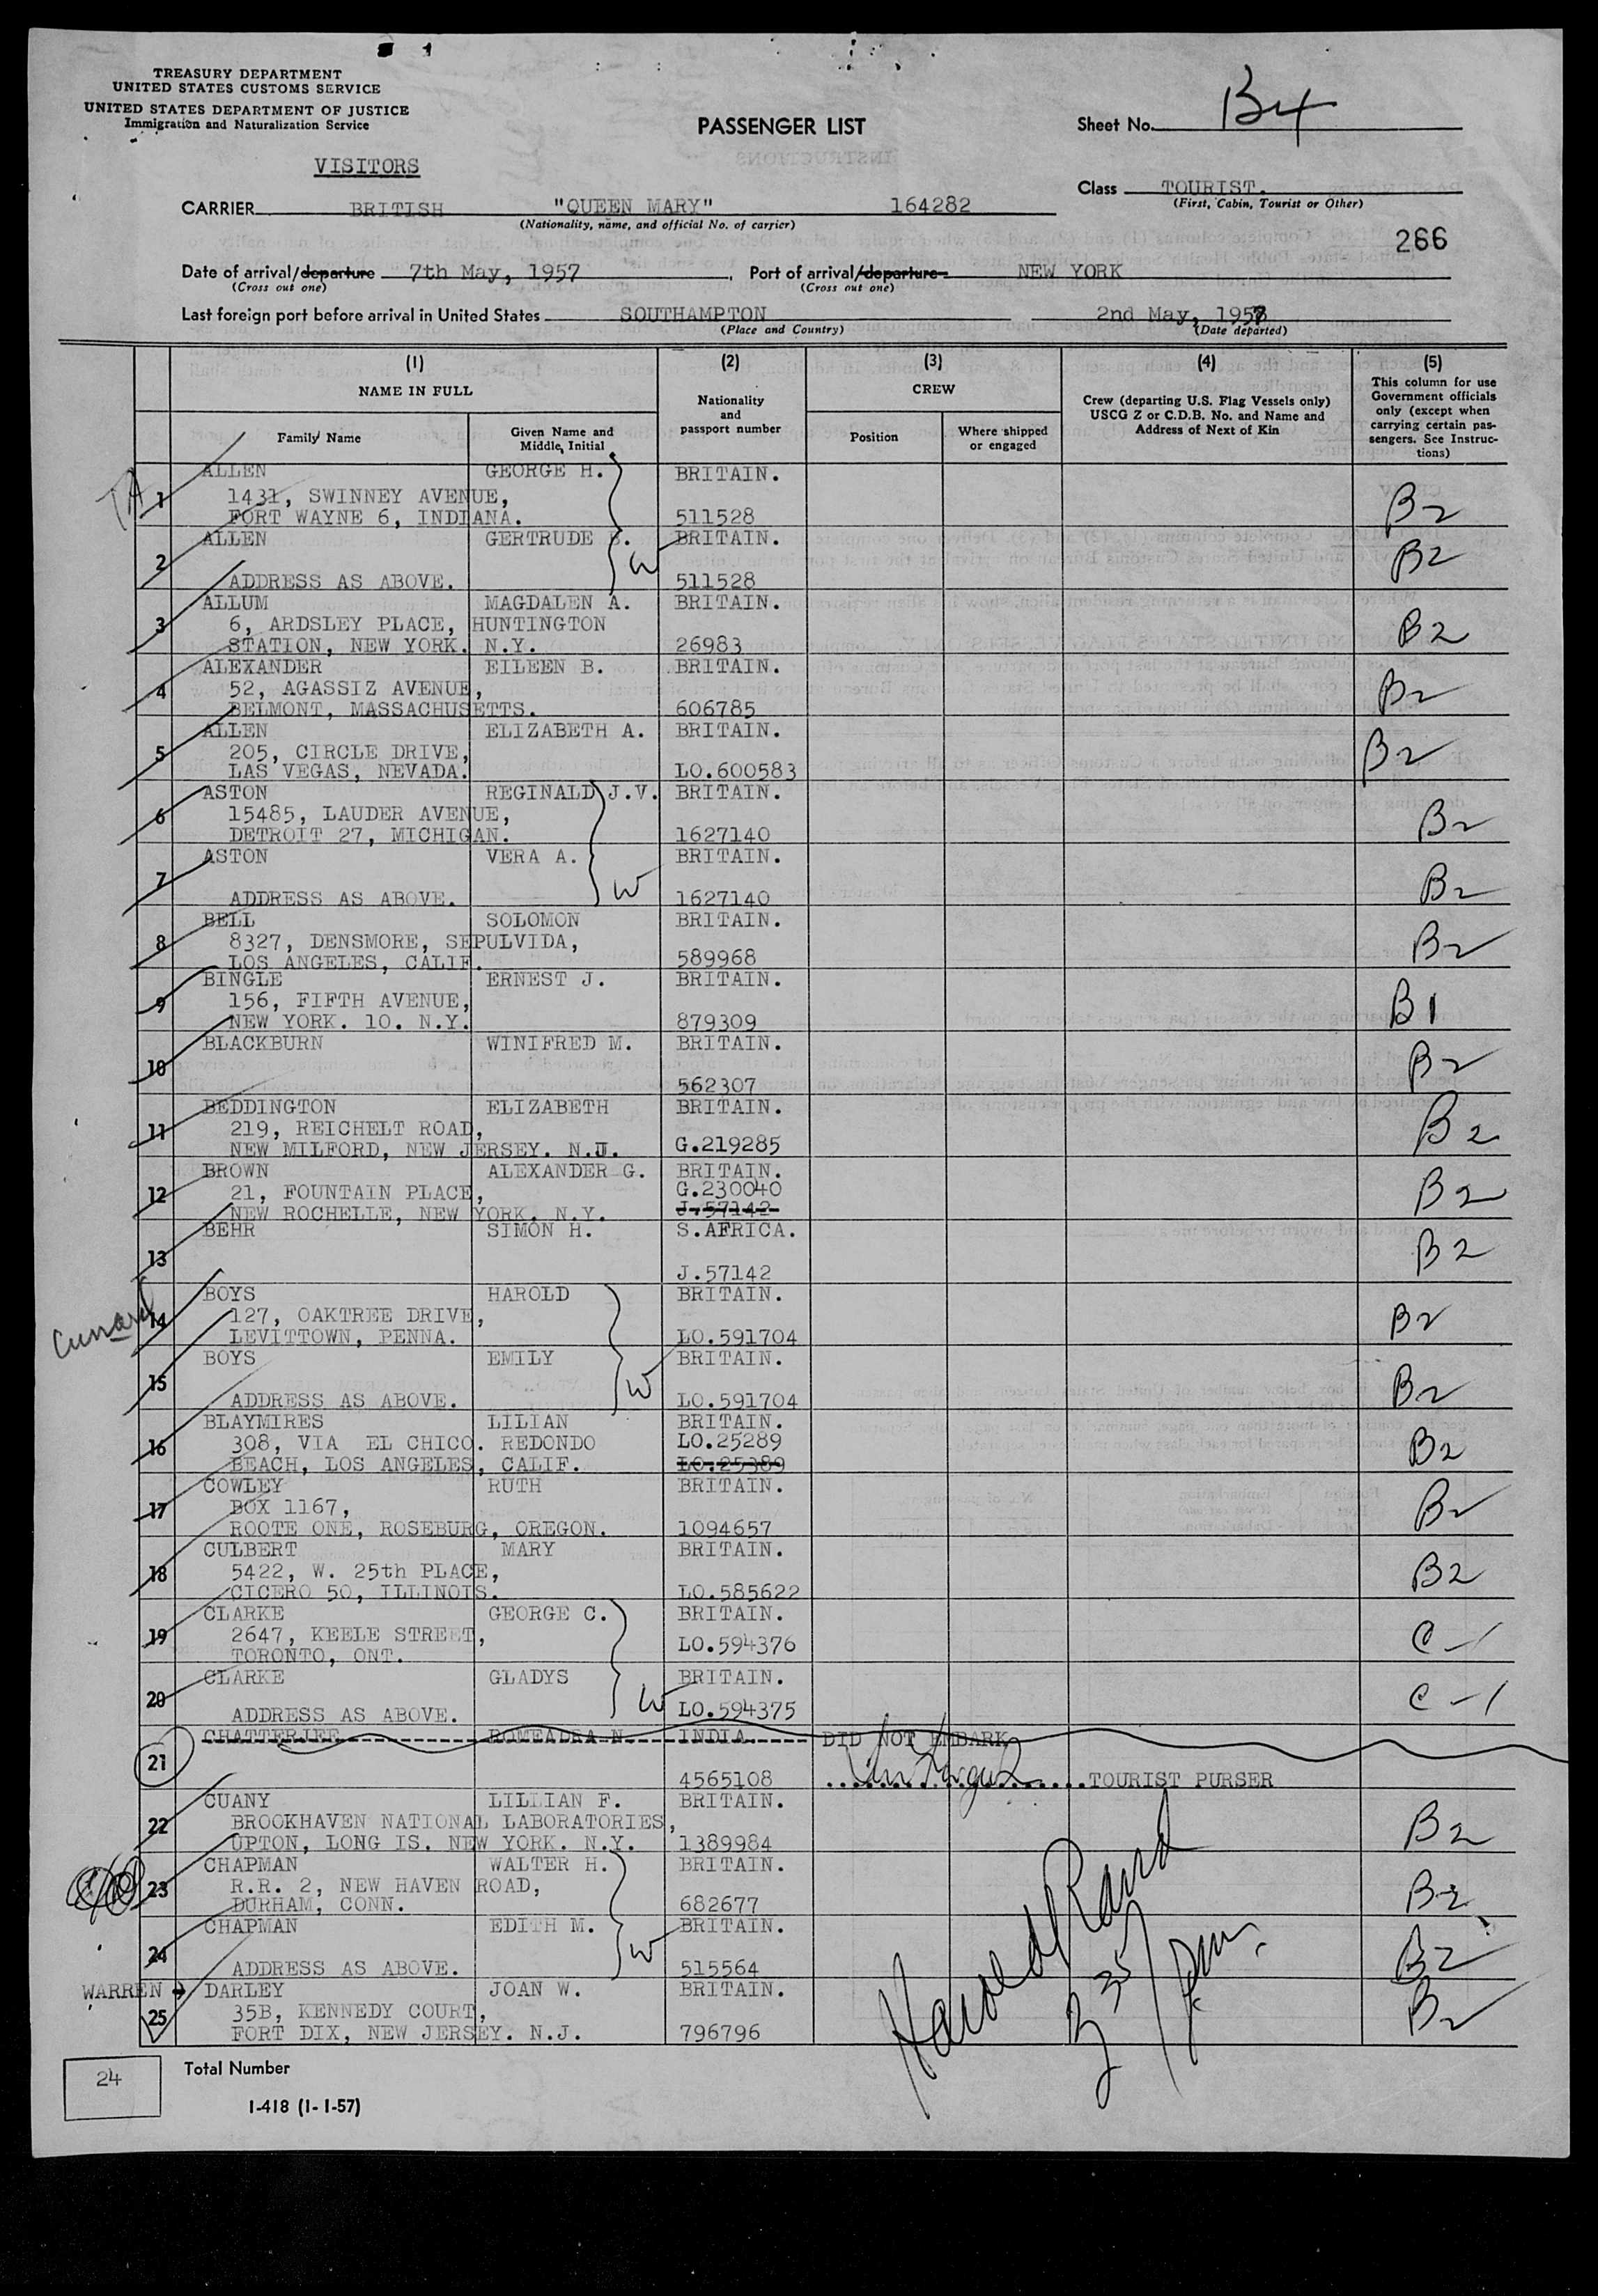 TREASURY DEPARTMENT
UNITED STATES CUSTOMS SERVICE
UNITED STATES DEPARTMENT OF JUSTICE
Immigration and Naturalization Service
PASSENGER LIST
Sheet No. B4
VISITORS
Class TOURIST.
(First, Cabin, Tourist or Other)
CARRIER BRITISH "QUEEN MARY" 164282
(Nationality, name, and official No. of carrier)
266
Date of arrival/departure 7th May, 1957, Port of arrival/departure NEW YORK
(Cross out one) (Cross out one)
Last foreign port before arrival in United States SOUTHAMPTON 2nd May, 1957
(Place and Country) (Date departed)
(1) (2) (3) (4) (5)
NAME IN FULL
Nationality and passport number
CREW
Crew (departing U.S. Flag Vessels only) USCG Z or C.D.B. No. and Name and Address of Next of Kin
This column for use Government officials only (except when carrying certain passengers. See Instructions)
Family Name Given Name and Middle Initial Position Where shipped or engaged
TA 1 ALLEN GEORGE H. BRITAIN.
1431, SWINNEY AVENUE,
FORT WAYNE 6, INDIANA. 511528 B2
2 ALLEN GERTRUDE B. W BRITAIN.
ADDRESS AS ABOVE. 511528 B2
3 ALLUM MAGDALEN A. BRITAIN.
6, ARDSLEY PLACE, HUNTINGTON
STATION, NEW YORK. N.Y. 26983 B2
4 ALEXANDER EILEEN B. BRITAIN.
52, AGASSIZ AVENUE,
BELMONT, MASSACHUSETTS. 606785 B2
5 ALLEN ELIZABETH A. BRITAIN.
205, CIRCLE DRIVE,
LAS VEGAS, NEVADA. LO.600583 B2
6 ASTON REGINALD J.V. BRITAIN.
15485, LAUDER AVENUE,
DETROIT 27, MICHIGAN. 1627140 B2
7 ASTON VERA A. W BRITAIN.
ADDRESS AS ABOVE. 1627140 B2
8 BELL SOLOMON BRITAIN.
8327, DENSMORE, SEPULVIDA,
LOS ANGELES, CALIF. 589968 B2
9 BINGLE ERNEST J. BRITAIN.
156, FIFTH AVENUE,
NEW YORK. 10. N.Y. 879309 B1
10 BLACKBURN WINIFRED M. BRITAIN.
562307 B2
11 BEDDINGTON ELIZABETH BRITAIN.
219, REICHELT ROAD,
NEW MILFORD, NEW JERSEY. N.J. G.219285 B2
12 BROWN ALEXANDER G. BRITAIN.
21, FOUNTAIN PLACE, G.230040
NEW ROCHELLE, NEW YORK. N.Y. J.57142 B2
13 BEHR SIMON H. S.AFRICA.
J.57142 B2
Cunard 14 BOYS HAROLD BRITAIN.
127, OAKTREE DRIVE,
LEVITTOWN, PENNA. LO.591704 B2
15 BOYS EMILY W BRITAIN.
ADDRESS AS ABOVE. LO.591704 B2
16 BLAYMIRES LILIAN BRITAIN.
308, VIA EL CHICO. REDONDO LO.25289
BEACH, LOS ANGELES, CALIF. LO.25389 B2
17 COWLEY RUTH BRITAIN.
BOX 1167,
ROOTE ONE, ROSEBURG, OREGON. 1094657 B2
18 CULBERT MARY BRITAIN.
5422, W. 25th PLACE,
CICERO 50, ILLINOIS. LO.585622 B2
19 CLARKE GEORGE C. BRITAIN.
2647, KEELE STREET, LO.594376
TORONTO, ONT. C-1
20 CLARKE GLADYS W BRITAIN.
ADDRESS AS ABOVE. LO.594375 C-1
21 CHATTERJEE N. INDIA. DID NOT EMBARK
4565108 TOURIST PURSER
22 CUANY LILLIAN F. BRITAIN.
BROOKHAVEN NATIONAL LABORATORIES,
UPTON, LONG IS. NEW YORK. N.Y. 1389984 B2
23 CHAPMAN WALTER H. BRITAIN.
R.R. 2, NEW HAVEN ROAD,
DURHAM, CONN. 682677 B2
24 CHAPMAN EDITH M. W BRITAIN.
ADDRESS AS ABOVE. 515564 B2
WARREN → 25 DARLEY JOAN W. BRITAIN.
35B, KENNEDY COURT,
FORT DIX, NEW JERSEY. N.J. 796796 B2
Harold
24 Total Number
I-418 (1-1-57)